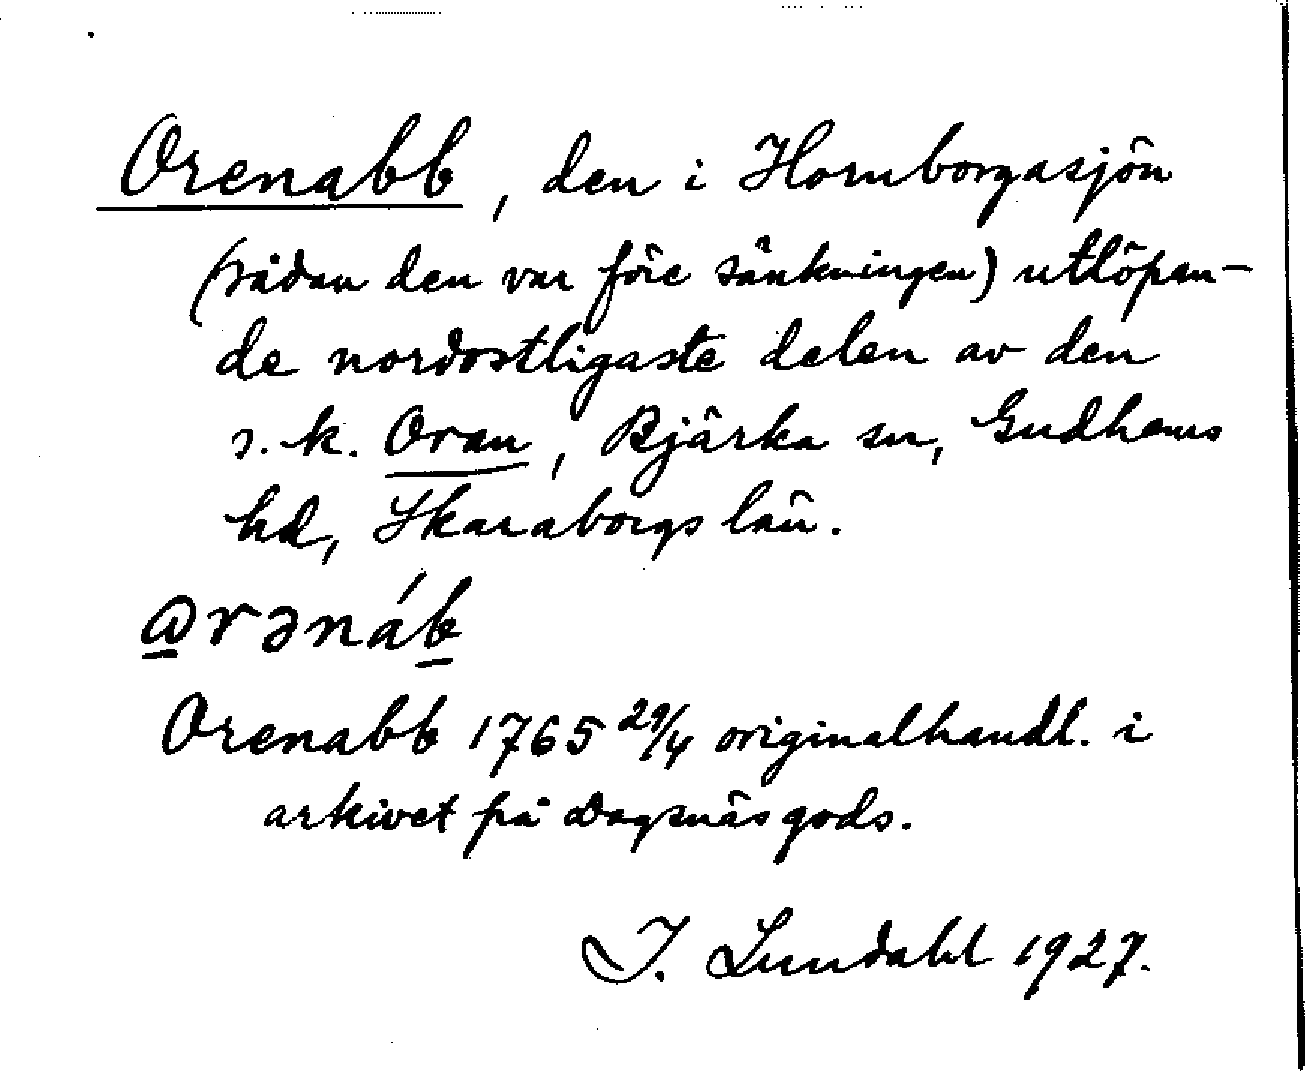 Orenabb, den i Hornborgasjön
(sådan den var före sänkningen) utlöpan-
de nordostligaste delen av den
s.k. Oran, Bjärka sn, Gudhems
hd, Skaraborgs län.
ꞷrənáb
Orenabb 1765 29/4 originalhandl. i
arkivet på Dagsnäs gods.
I. Lundahl 1927.